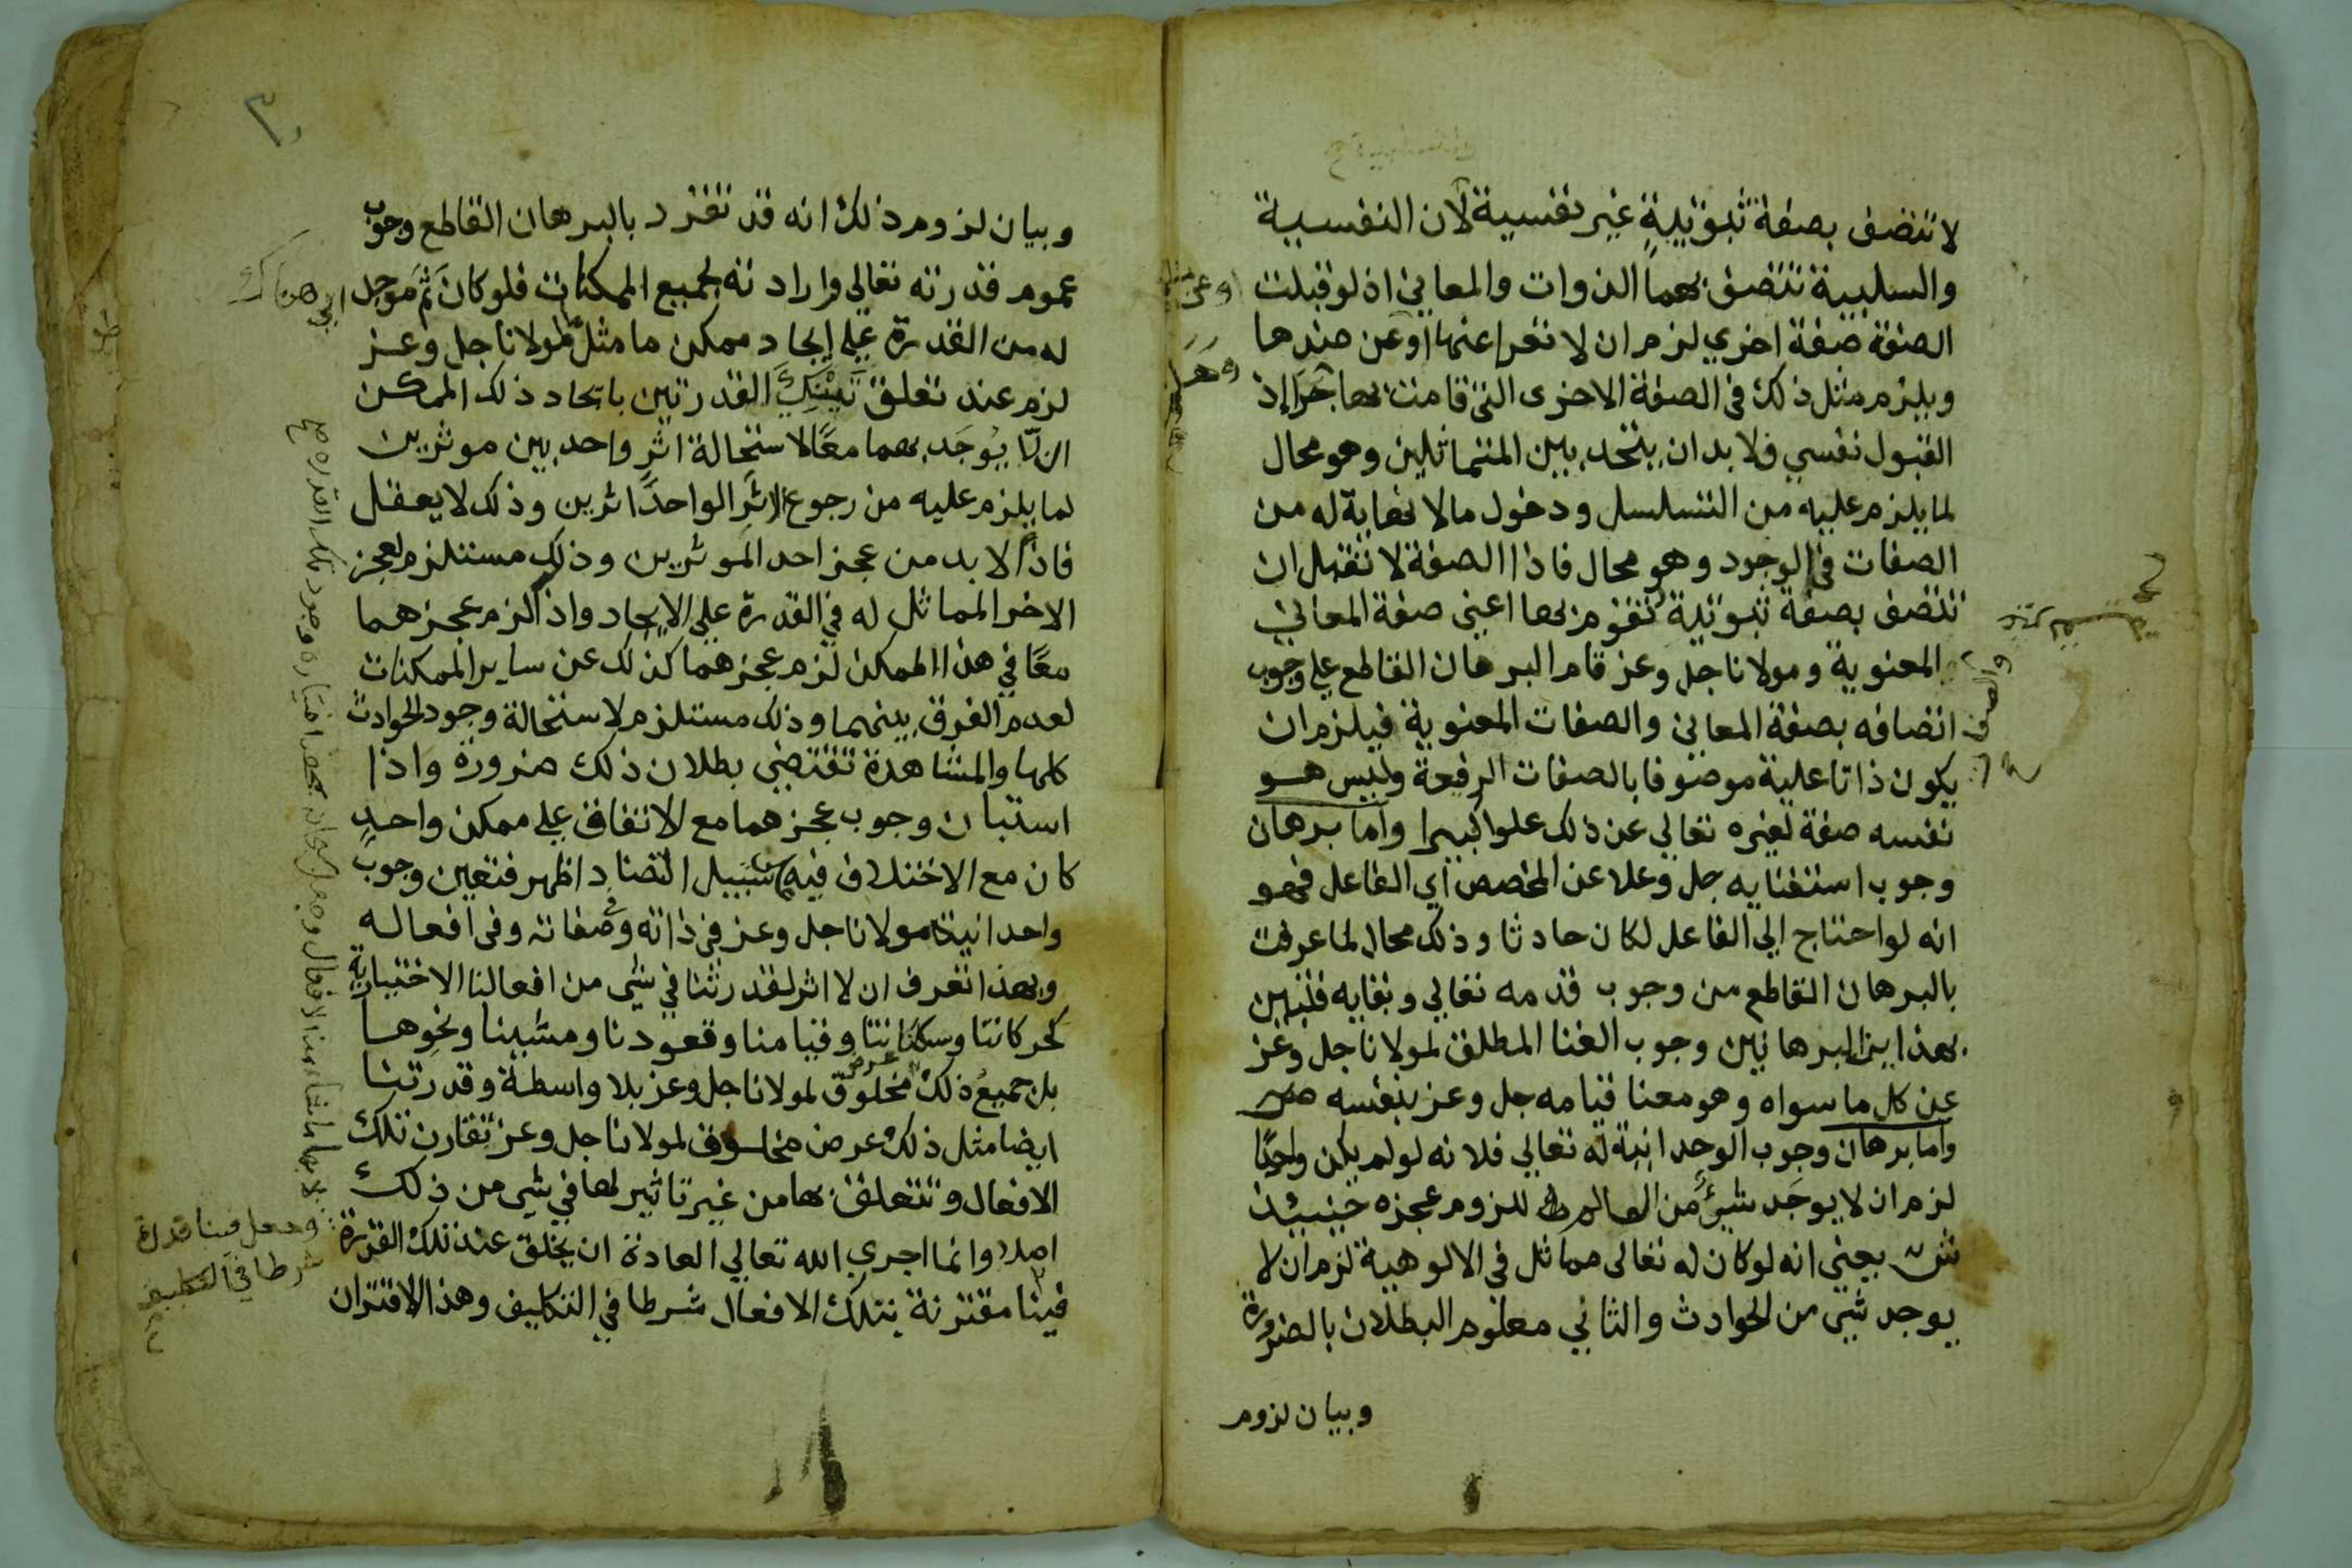 لا تتصف بصفة ثبوتية غير نفسية لان النفسية
والسلبية تتصف بهما الذوات والمعاني اذ لو قبلت
الصفة صفة اخري لزم ان لا تعرا عنها او عن ضدها
ويلزم مثل ذلك في الصفة الاخرى التي قامت بها جرا إذ
القبول نفسي فلا بد ان يتحد بين المتماثلين وهو محال
لما يلزم عليه من التسلسل ودخول ما لا نهاية له من
الصفات في الوجود وهو محال فاذا الصفة لا تقبل ان
تتصف بصفة ثبوتية تقوم بها اعني صفة المعاني
المعنوية ومولانا جل وعز قام البرهان القاطع علي وجوب
اتصافه بصفة المعاني والصفات المعنوية فيلزم ان
يكون ذاتا علية موصوفا بالصفات الرفيعة وليس هو
نفسه صفة لغيره تعالي عن ذلك علوا كبيرا واما برهان
وجوب استغنايه جل وعلا عن المخصص اي الفاعل فهو
انه لو احتاج الي الفاعل لكان حادثا وذلك محال لما عرفت
بالبرهان القاطع من وجوب قدمه تعالي وبقايه فتبين
بهذاين البرهانين وجوب الغنا المطلق لمولانا جل وعز
عن كل ما سواه وهو معنا قيامه جل وعز بنفسه ص
واما برهان وجوب الوحدانية له تعالي فلانه لو لم يكن واحدًا
لزم ان لا يوجد شيءٌ من العالم للزوم عجزه حينيذ
ش يعني انه لو كان له تعالى مماثل في الالوهية لزم ان لا
يوجد شي من الحوادث والثاني معلوم البطلان بالضرورة
وبيان لزوم
٣٠
وبيان لزوم ذلك انه قد تقرر د بالبرهان القاطع وجوب
عموم قدرته تعالي وارادته لجميع الممكنات فلو كان ثَمَّ موجد
اي هناك
له من القدرة علي ايجاد ممكن ما مثل لمولانا جل وعز
لزم عند تعلق تَيْنِكَ القدرتين باتحاد ذلك الممكن
ان لا يُوجَد بهما معًا لاستحالة اثر واحد بين موثرين
لما يلزم عليه من رجوع الاثر الواحد اثرين وذلك لا يعقل
فاذًا لا بد من عجز احد الموثرين وذلك مستلزم لعجز
الاخر المماثل له في القدرة علي الايجاد واذا لزم عجزهما
معًا في هذا الممكن لزم عجزهما كذلك عن ساير الممكنات
لعدم الفرق بينهما وذلك مستلزم لاستحالة وجود الحوادث
كلها والمشاهدة تقتضي بطلان ذلك ضرورة واذا
استبان وجوب عجزهما مع الاتفاق علي ممكن واحدٍ
كان مع الاختلاف فيه سبيل التضاد اظهر فتعين وجوب
واحدانية مولانا جل وعز في ذاته وفي صفاته وفي افعاله
وبهذا تعرف ان لا اثر لقدرتنا في شي من افعالنا الاختيارية
كحركاتنا وسكناتنا وقيامنا وقعودنا ومشينا ونحوها
بل جميعُ ذلك مخلوق لمولانا جل وعز بلا واسطة وقدرتنا
ايضا مثل ذلك عرض مخلوق لمولانا جل وعز تقارن تلك
الافعال وتتعلق بها من غير تاثير لها في شي من ذلك
اصلا وانما اجري الله تعالي العادة ان يخلق عند تلك القدرة
وجعل فينا قدرة
شرطا في التكليف
فينا مقترنة بتلك الافعال شرطا في التكليف وهذا الاقتران